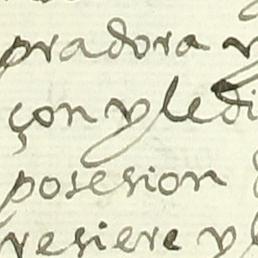 pradora y
çon y le di
posesion
resiere y